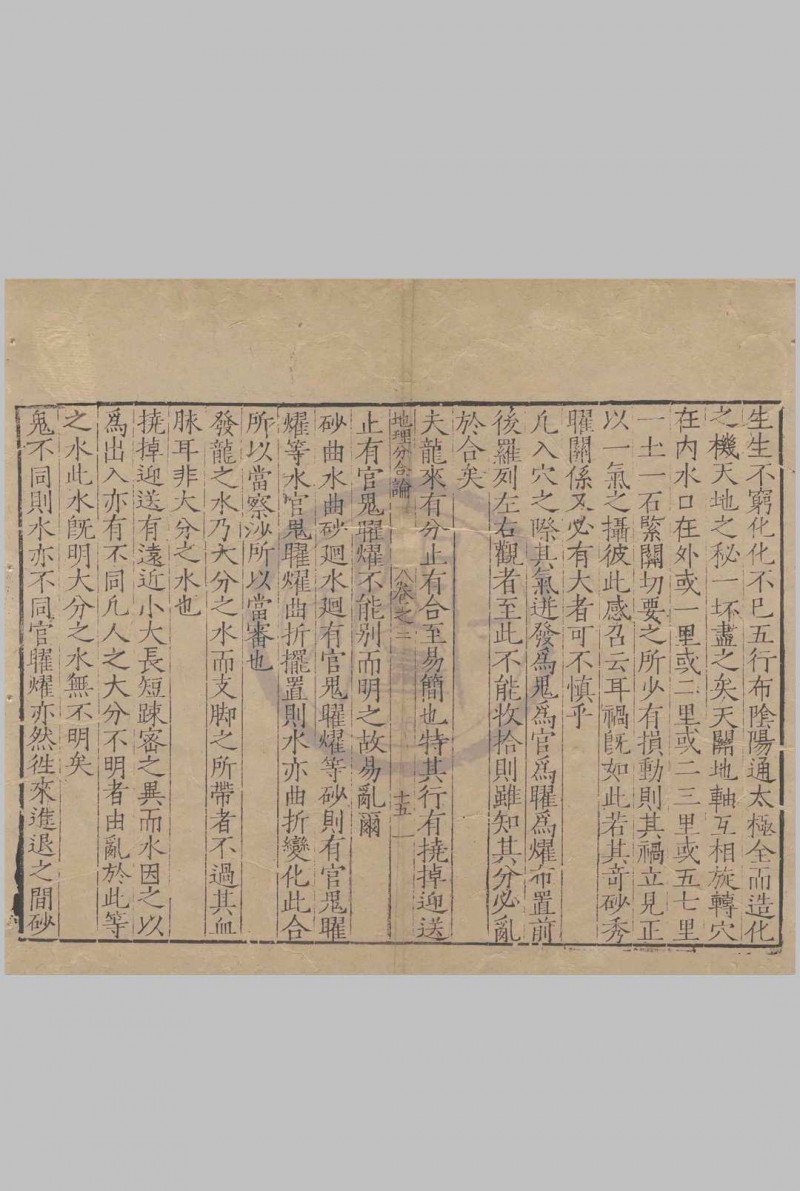 生生不窮化化不已五行布陰陽通太極全而造化
之機天地之秘一坏盡之矣天關地軸互相旋轉穴
在内水口在外或一里或二里或二三里或五七里
一土一石緊關切要之所少有損動則其禍立見正
以一氣之攝彼此感召云耳禍旣如此若其竒砂秀
曜關係又必有大者可不慎乎
凡入穴之際其氣迸發爲鬼爲官爲曜爲燿布置前
後羅列左右觀者至此不能收拾則雖知其分必亂
於合矣
夫龍來有分止有合至易簡也特其行有撓掉迎送
地理分合論
卷之二
十五
止有官鬼曜燿不能别而明之故易亂爾
砂曲水曲砂廻水廻有官鬼曜燿等砂則有官鬼曜
燿等水官鬼曜燿曲折擺置則水亦曲折變化此合
所以當察沙所以當審也
發龍之水乃大分之水而支脚之所帶者不過其血
脉耳非大分之水也
撓掉迎送有遠近小大長短踈密之異而水因之以
爲出入亦有不同凡人之大分不明者由亂於此等
之水此水旣明大分之水無不明矣
鬼不同則水亦不同官曜燿亦然徃來進退之間砂